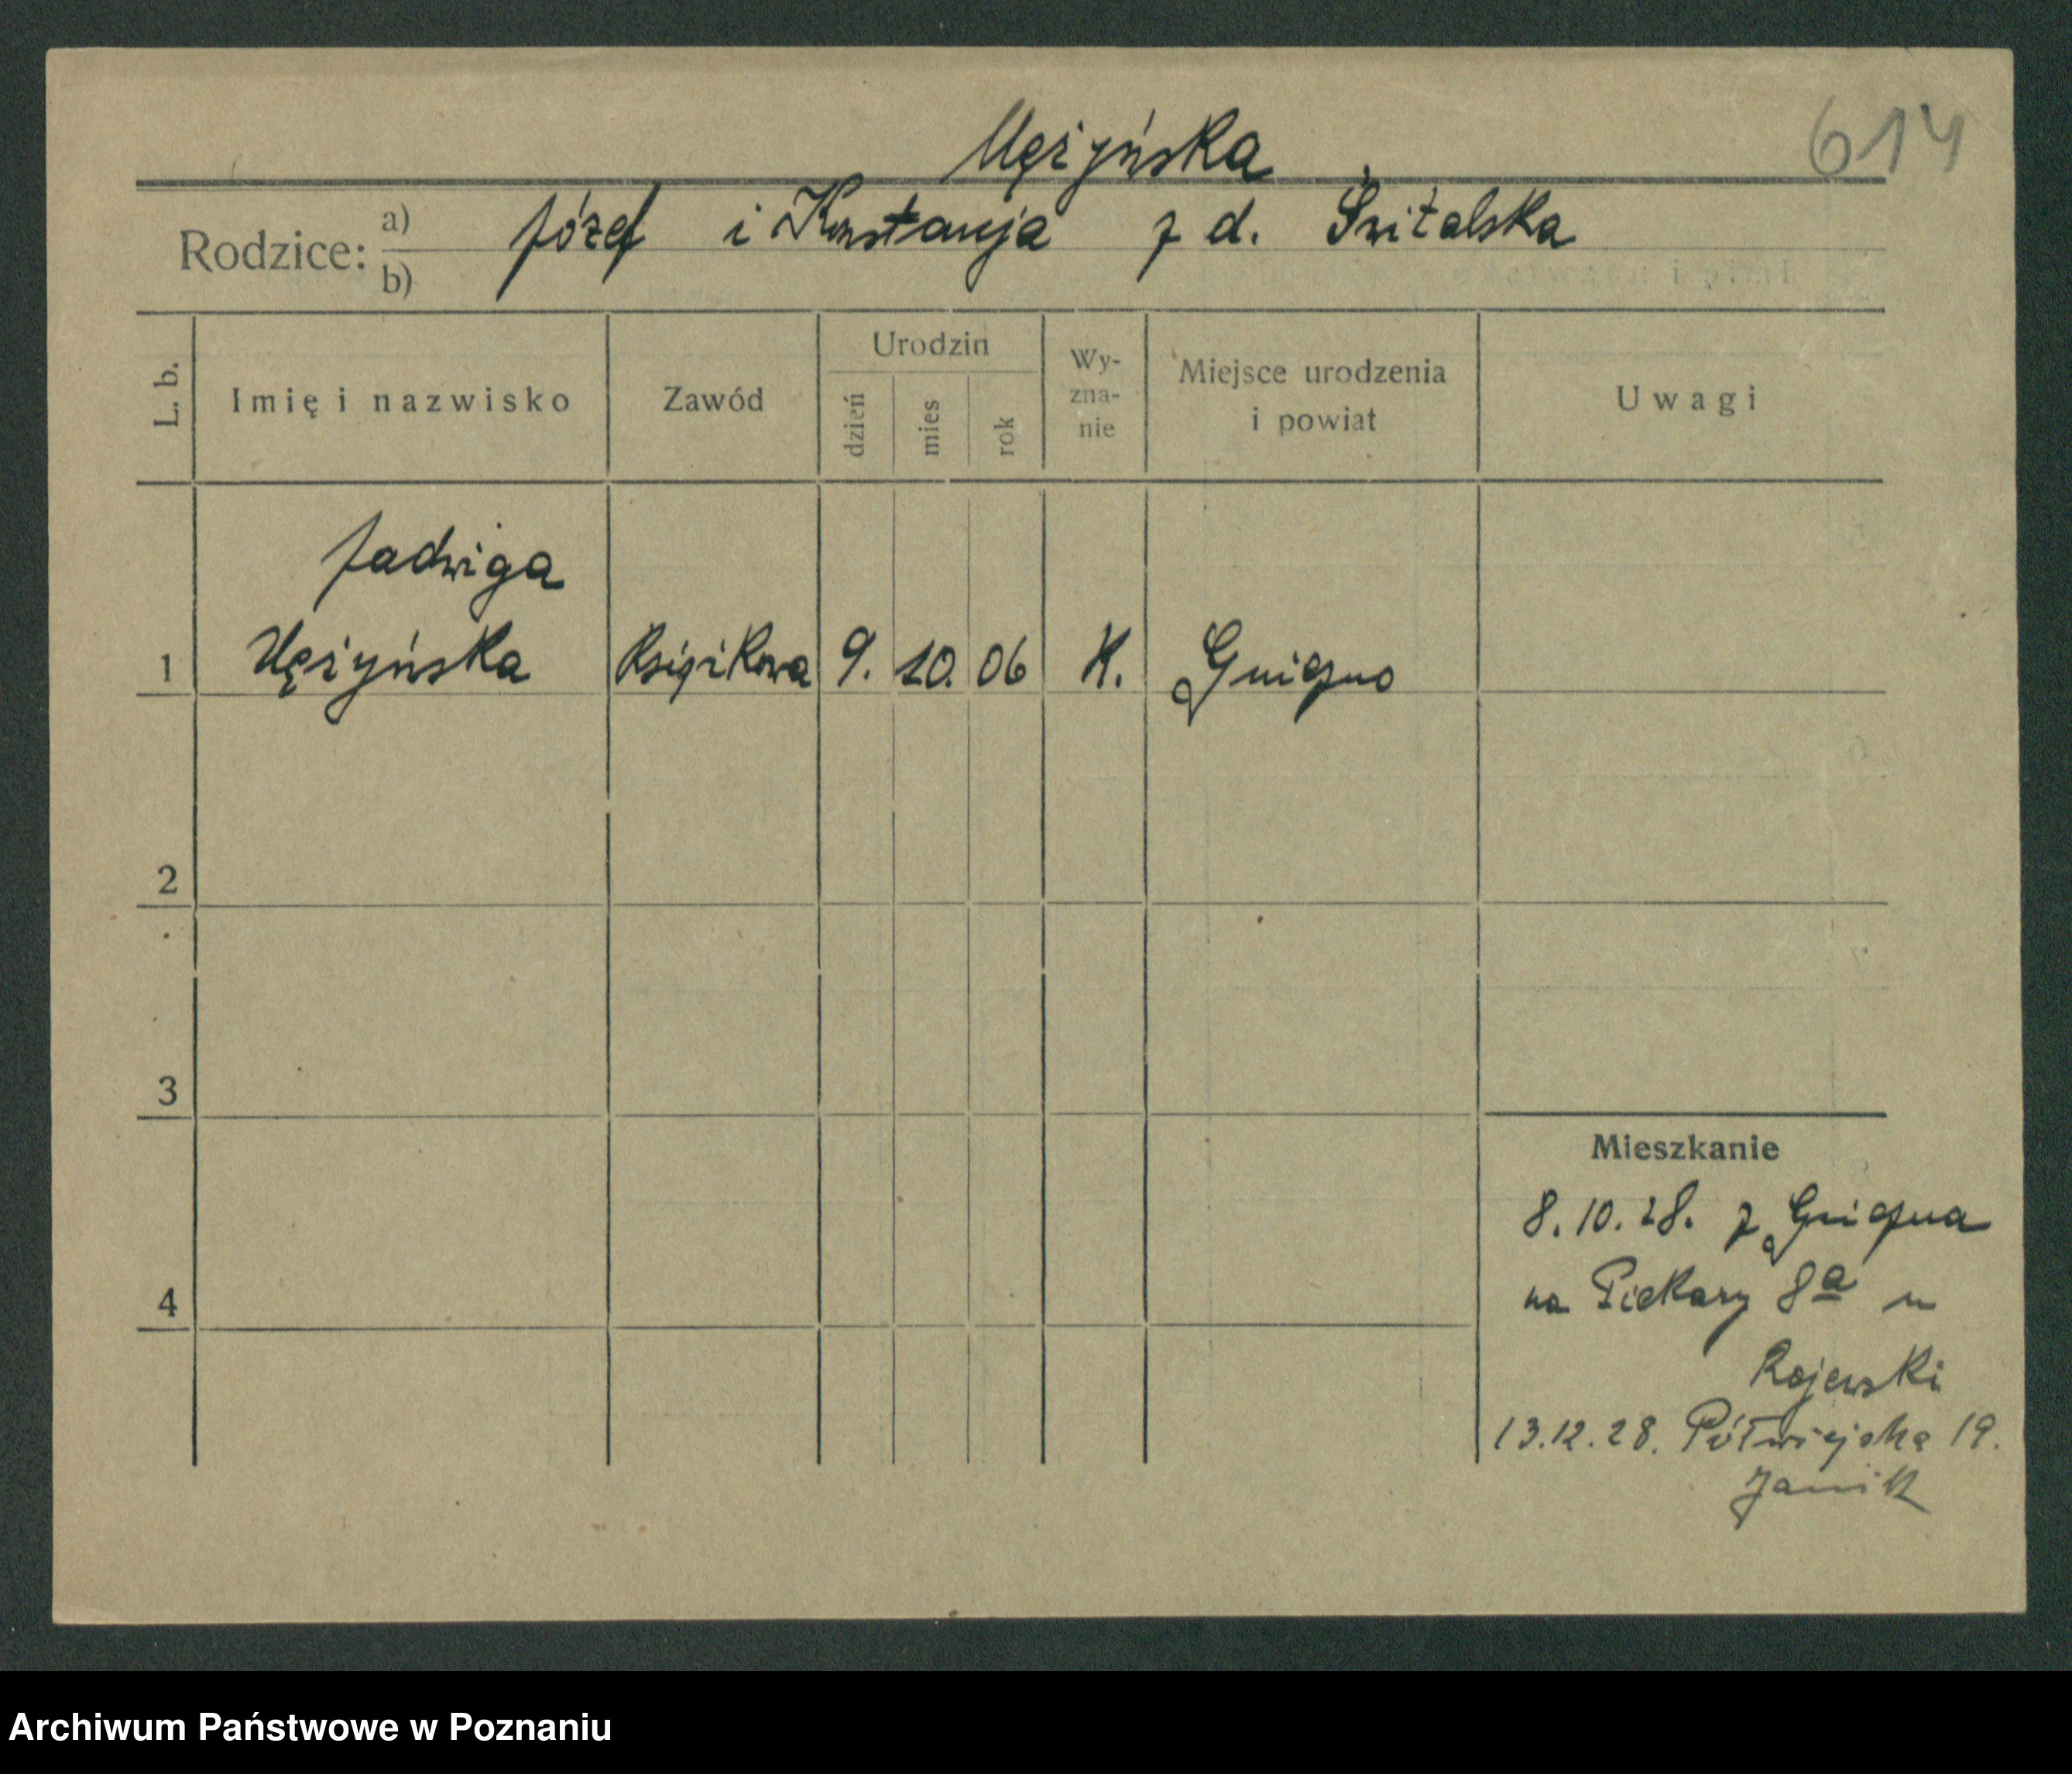 614
Mężyńska
Rodzice: a) b) Józef i Konstancja z d. Śmitalska
L. b. Imię i nazwisko Zawód Urodzin dzień mies rok Wy-zna-nie Miejsce urodzenia i powiat Uwagi
Jadwiga
1 Mężyńska 9. 10. 06 K. Gniezno
2
3
Mieszkanie
8.10.28. z Gniezna
4
na Piekary 8a u
Rojewski
13.12.28. Półwiejska 19.
Janik
Archiwum Państwowe w Poznaniu